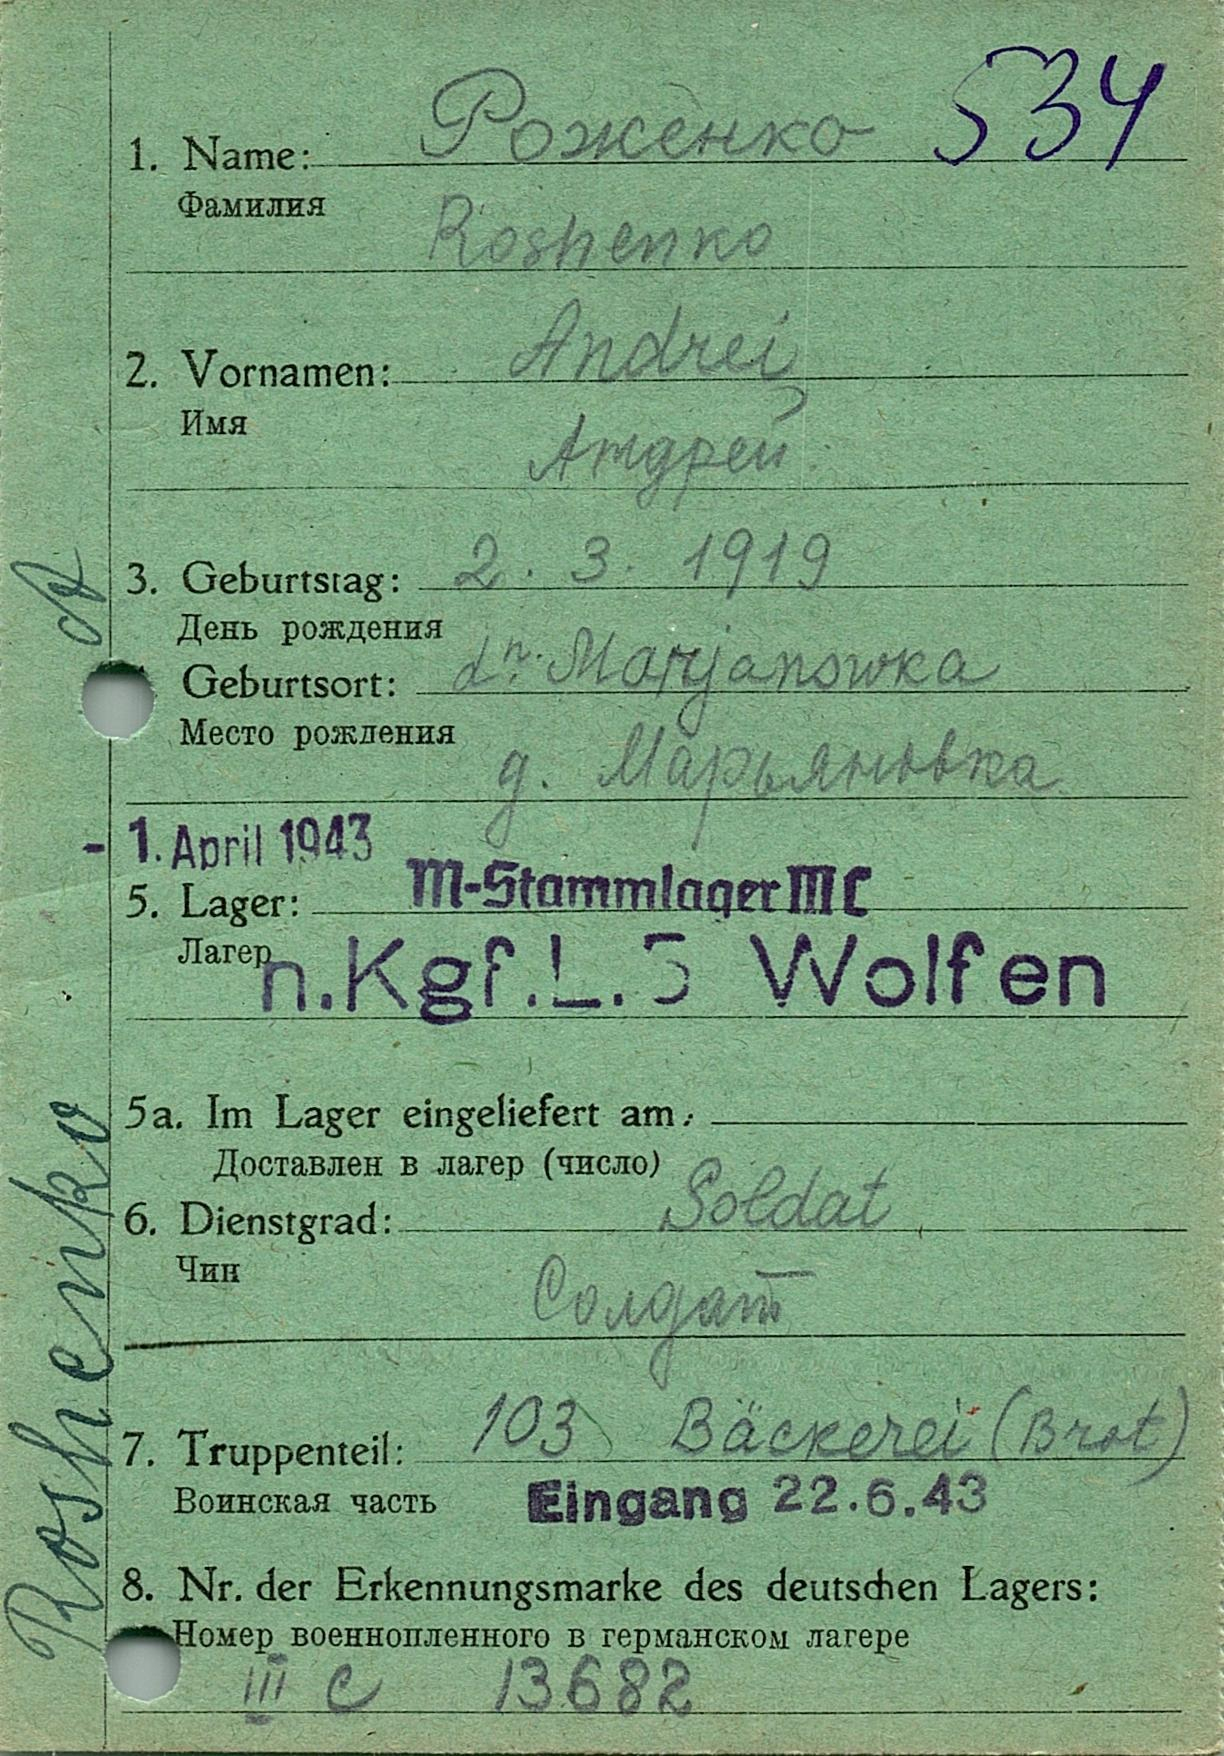 534
1. Name: Роженко
Фамилия
Roshenko
2. Vornamen: Andrei
Имя
Андрей
3. Geburtstag: 2. 3. 1919
День рождения
Geburtsort: dn. Marjanowka
Место рождения
д. Марьяновка
- 1. April 1943
5. Lager: M-Stammlager III C
Лагер
n. Kgf. L. 3 Wolfen
5a. Im Lager eingeliefert am:
Доставлен в лагер (число)
6. Dienstgrad: Soldat
Чин
Солдат
7. Truppenteil: 103 Bäckerei (Brot)
Воинская часть
Eingang 22.6.43
8. Nr. der Erkennungsmarke des deutschen Lagers:
Номер военнопленного в германском лагере
III C 13682
Roshenko A